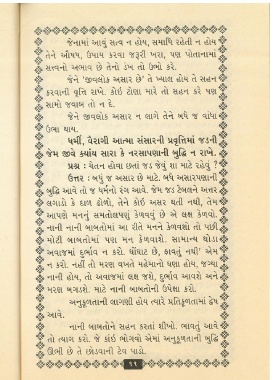 જેનામાં આવું સત્વ ન હોય, સમાધિ રહેતી ન હોય
તેને ઔષધ, ઉપાય કરવા જરૂરી ખરા, પણ પોતાનામાં
સત્વનો અભાવ છે તેનો ડંખ તો ઉભો કરે.
જેને 'જીવલોક અસાર છે' તે ખ્યાલ હોય તે સહન
કરવાની વૃત્તિ રાખે. કોઈ ટોણા મારે તો સહન કરે પણ
સામો જવાબ તો ન દે.
જેને જીવલોક અસાર ન લાગે તેને બધે જ વાંધા
ઉભા થાય.
ધર્મી, વૈરાગી આત્મા સંસારની પ્રવૃત્તિમાં જડની
જેમ જીવે ક્યાંય સારા કે નરસાપણાની બુદ્ધિ ન રાખે.
પ્રશ્ન : ચેતન હોવા છતાં જડ જેવું શા માટે રહેવું ?
ઉત્તર : બધું જ અસાર છે માટે. બધે અસારપણાની
બુદ્ધિ આવે તો જ ધર્મનો રંગ આવે. જેમ જડ ટેબલને અત્તર
લગાડો કે દાળ ઢોળો, તેને કોઈ અસર થતી નથી, તેમ
આપણે મનનું સમતોલપણું કેળવવું છે એ લક્ષ કેળવો.
નાની નાની બાબતોમાં આ રીતે મનને કેળવશો તો પછી
મોટી બાબતોમાં પણ મન કેળવાશે. સામાન્ય થોડા
અવાજમાં દુર્ભાવ ન કરો. ઘોંઘાટ છે, ફાવતું નથી' એમ
ન કરો. નહીં તો મરણ વખતે મહેમાનો ઘણા હોય, જગ્યા
નાની હોય, તો અવાજમાં લક્ષ જશે, દુર્ભાવ આવશે અને
મરણ બગડશે. માટે નાની બાબતોની ઉપેક્ષા કરો.
અનુકૂળતાની લાગણી હોય ત્યારે પ્રતિકૂળતામાં દ્વેષ
આવે.
નાની બાબતોને સહન કરતાં શીખો. ભાવતું આવે
તો ત્યાગ કરો. જે કાંઈ ભોગવો એમાં અનુકૂળતાની બુદ્ધિ
ઊભી છે તે છોડવાની ટેવ પાડો.